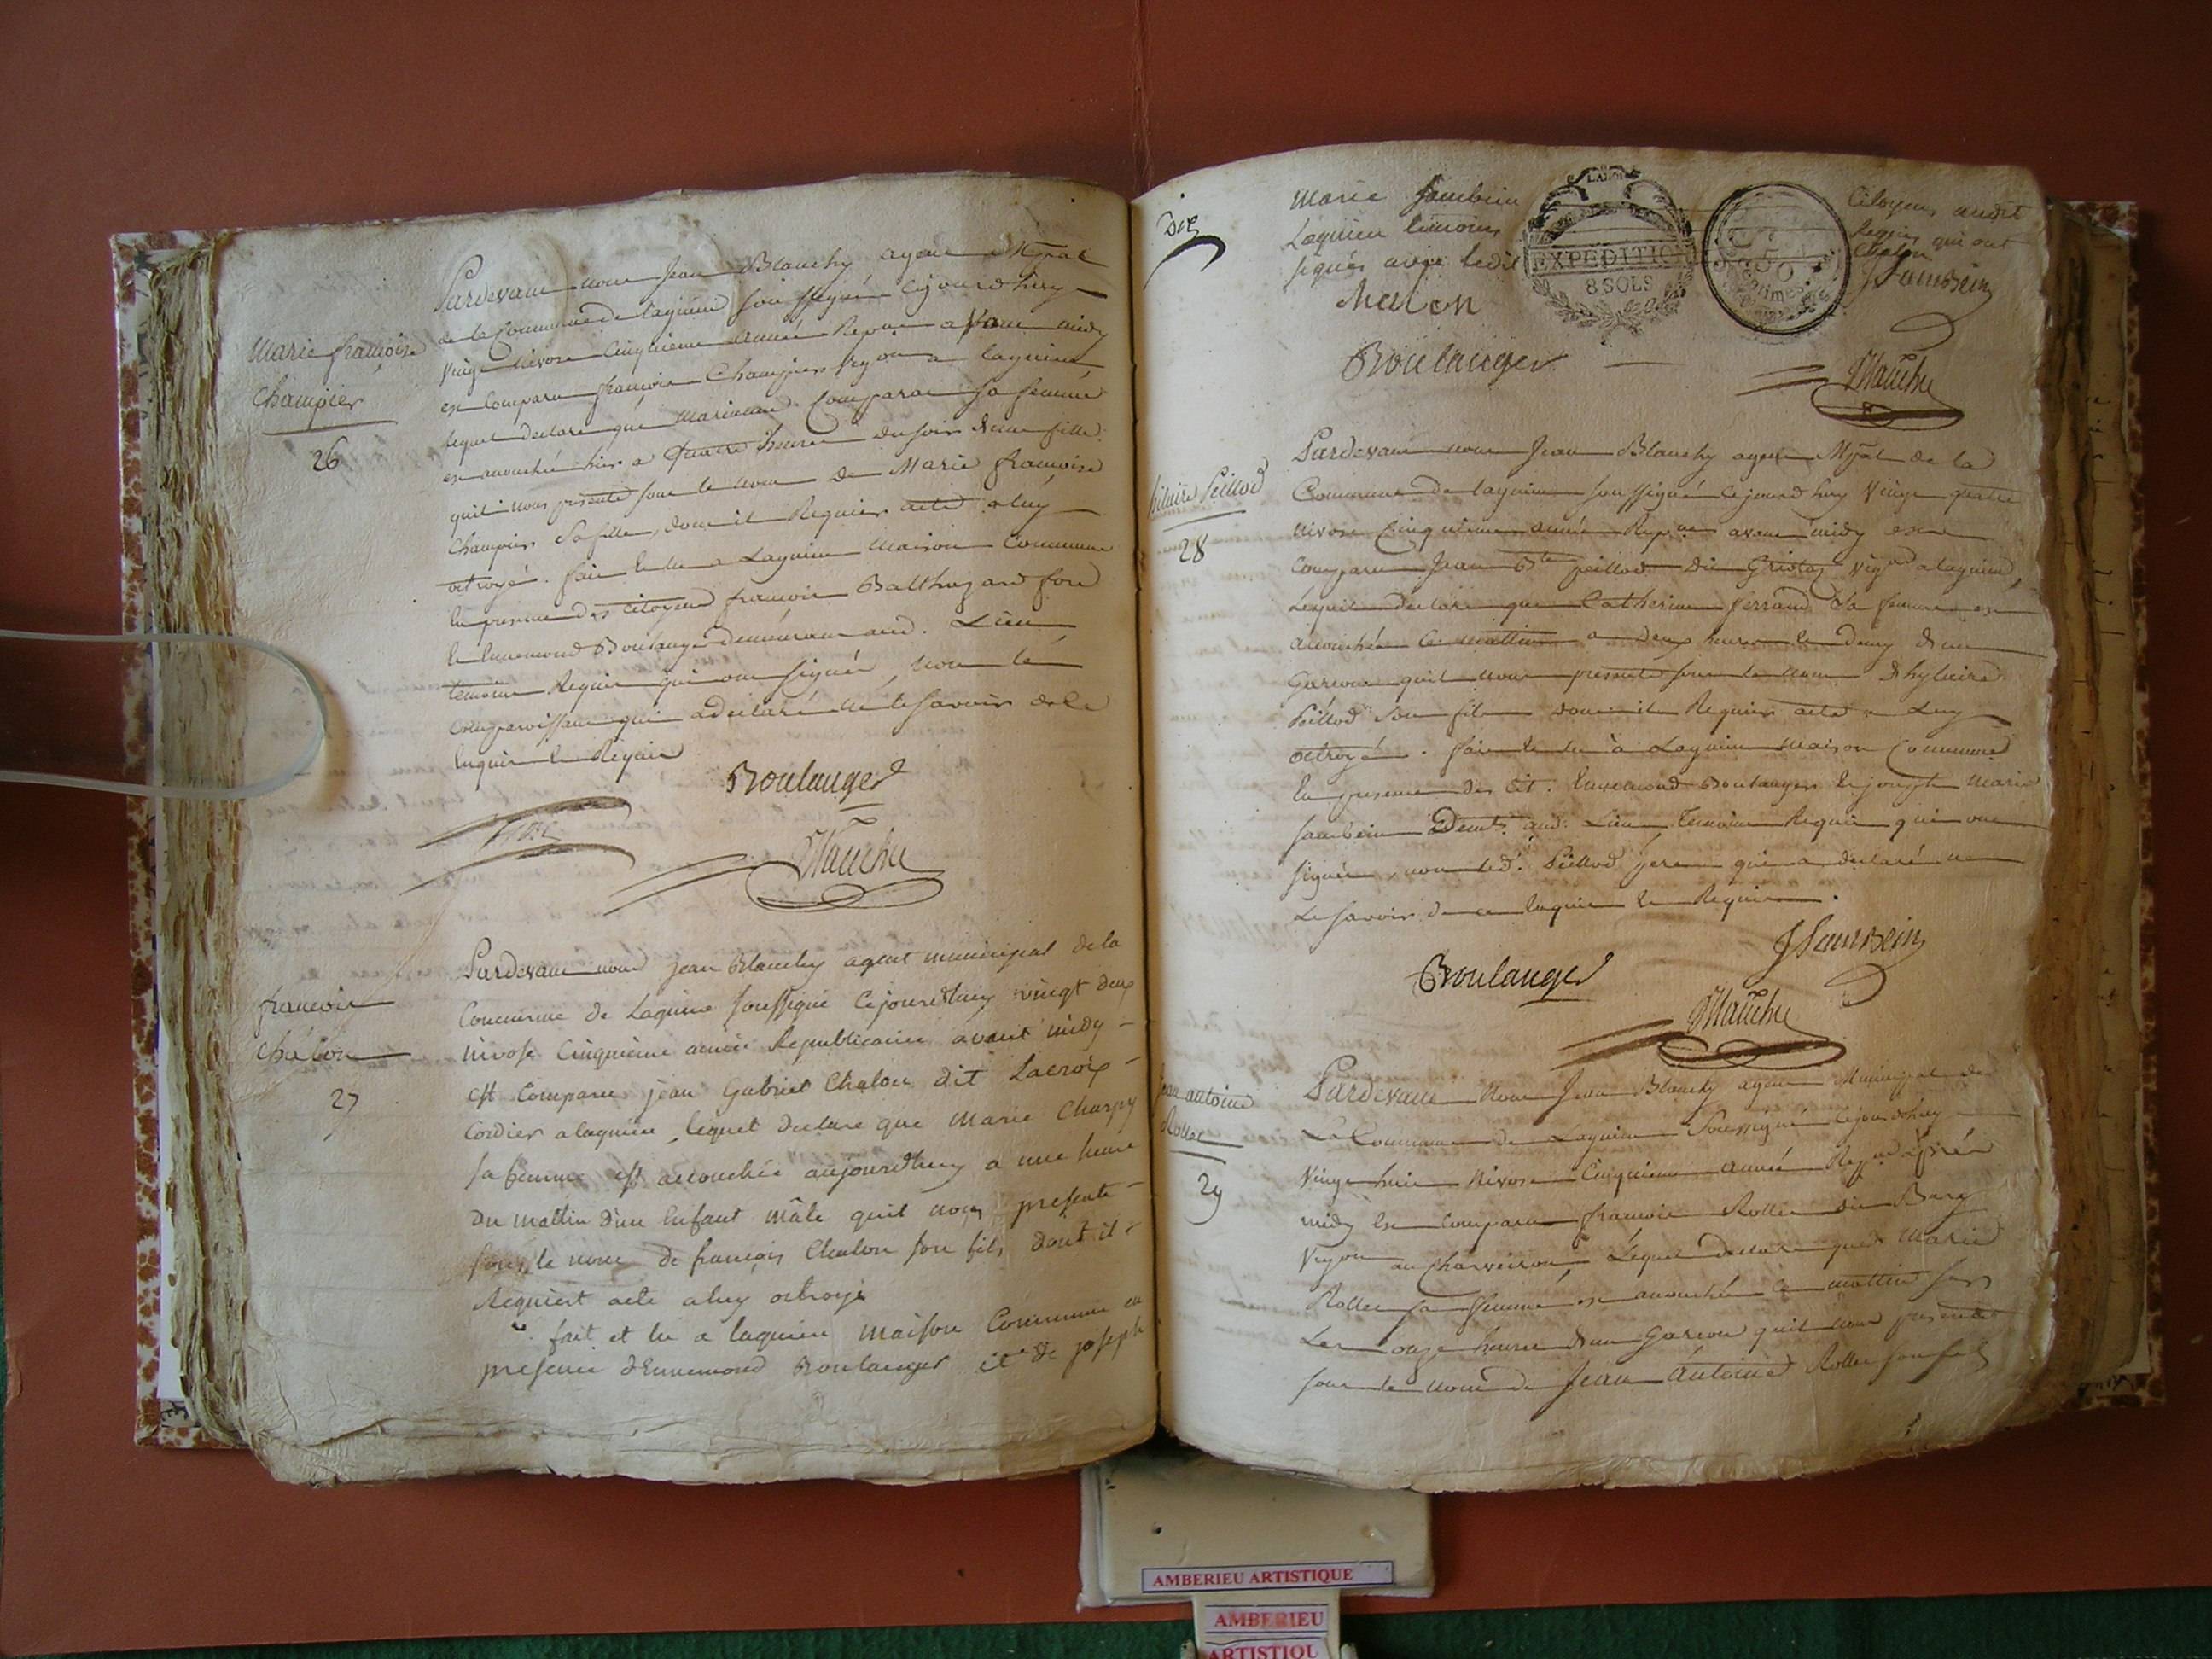 Marie françoise
Champier
26
Pardevant nous Jean Blanchy agent Mpal
de la Commune de Lagnieu soussigné cejourd'huy
vingt nivose Cinquieme année Repne avant midy
est Comparu françois Champier vigon a lagnieu
lequel declare que Comparat sa femme
est accouchée hier a quatre heures du soir d'une fille
quil nous presente sous le nom de Marie françoise
Champier sa fille, dont il Requier acte a luy
octroyé. fait et lu a Lagnieu Maison Commune
en presence des citoyens francois Balthazard fore
et Ennemond Boulanger demeurant aud. Lieu
temoins Requis qui ont signés, non le
Comparoissant qui a declaré ne le savoir de ce
Enquis et Requis
Boulanger
Blanchy
francois
Chalon
27
Pardevant nous jean Blanchy agent municipal de la
Commune de Lagnieu soussigné Cejourd'huy vingt deux
nivose Cinquieme année Republicaine avant midy
est Comparu jean Gabriel Chalon dit Lacroix
Cordier a lagnieu, lequel declare que Marie Charpy
sa femme est accouchée aujourd'huy a une heure
du mattin d'un Enfant mâle quil nous presente
sous le nom de francois Chalon son fils dont il
Requiert acte a luy octroyé
fait et lu a lagnieu maison Commune en
presence d'Ennemond Boulanger et de joseph
Dix
Marie Jambein Citoyens audit
Lagnieu temoins Requis qui ont
signés avec ledit Chalon
EXPEDITION
8 SOLS
50
centimes
Chalon
JJambein
Boulanger
Blanchy
hilaire Peillod
28
Pardevant nous Jean Blanchy agent Mpal de la
Commune de lagnieu soussigné Cejourd huy vingt quatre
nivose Cinquieme année Repne avant midy est
Comparu Jean Bte peillod dit Griotaz vigon a lagnieu,
Lequel declare que Catherine ferrand sa femme est
accouchée Ce mattin a deux heures et demy d'un
Garcon quil nous presente sous le nom d'hylaire
Peillod son fils dont il Requier acte a Luy
octroyé. fait et lu à Lagnieu maison Commune
En presence des Cit. Ennemond Boulanger et joseph Marie
Jambein Demts aud. Lieu, Temoins Requis qui ont
signés, non led. Peillod pere qui a declaré ne
Le savoir de ce Enquis et Requis.
Boulanger
JJambein
Blanchy
Jean antoine
Rollet
29
Pardevant Nous Jean Blanchy agent Municipal de
La Commune de Lagnieu Soussigné cejourdhuy
Vingt huit Nivose Cinquieme année Repne après
midy Est Comparu francois Rollet dit
Vigon au Charveiron, Lequel declare que Marie
Rollet sa femme est accouchée ce mattin sur
Les onze heures d'un Garcon quil nous presente
sous le nom de Jean Antoine Rollet son fils
AMBERIEU ARTISTIQUE
AMBERIEU
ARTISTIQU